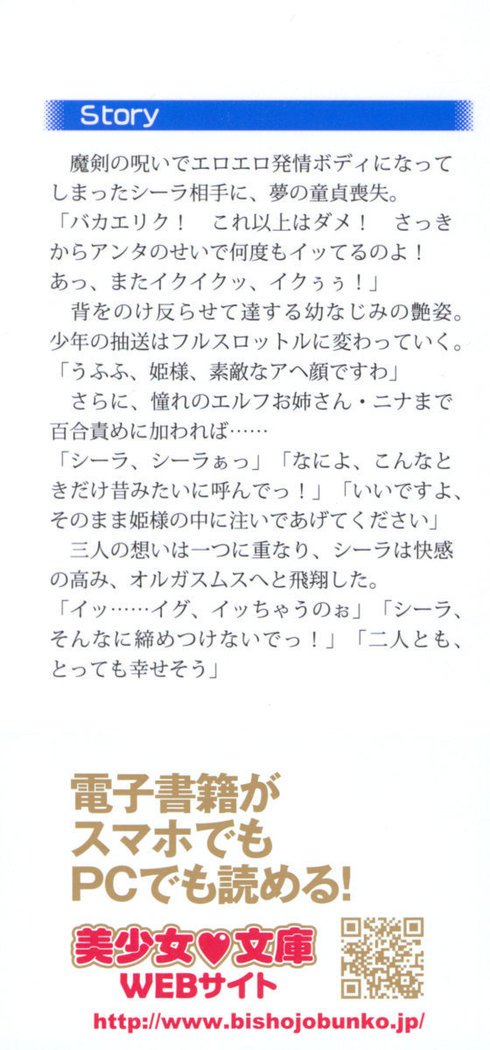 Story
魔剣の呪いでエロエロ発情ボディになって
しまったシーラ相手に、夢の童貞喪失。
「バカエリク！　これ以上はダメ！　さっき
からアンタのせいで何度もイッてるのよ！
あっ、またイクイクッ、イクぅぅ！」
背をのけ反らせて達する幼なじみの艶姿。
少年の抽送はフルスロットルに変わっていく。
「うふふ、姫様、素敵なアヘ顔ですわ」
さらに、憧れのエルフお姉さん・ニナまで
百合責めに加われば……
「シーラ、シーラぁっ」「なによ、こんなと
きだけ昔みたいに呼んでっ！」「いいですよ、
そのまま姫様の中に注いであげてください」
三人の想いは一つに重なり、シーラは快感
の高み、オルガスムスへと飛翔した。
「イッ……イグ、イッちゃうのぉ」「シーラ、
そんなに締めつけないでっ！」「二人とも、
とっても幸せそう」
電子書籍が
スマホでも
PCでも読める!
美少女♥文庫
WEBサイト
http://www.bishojobunko.jp/